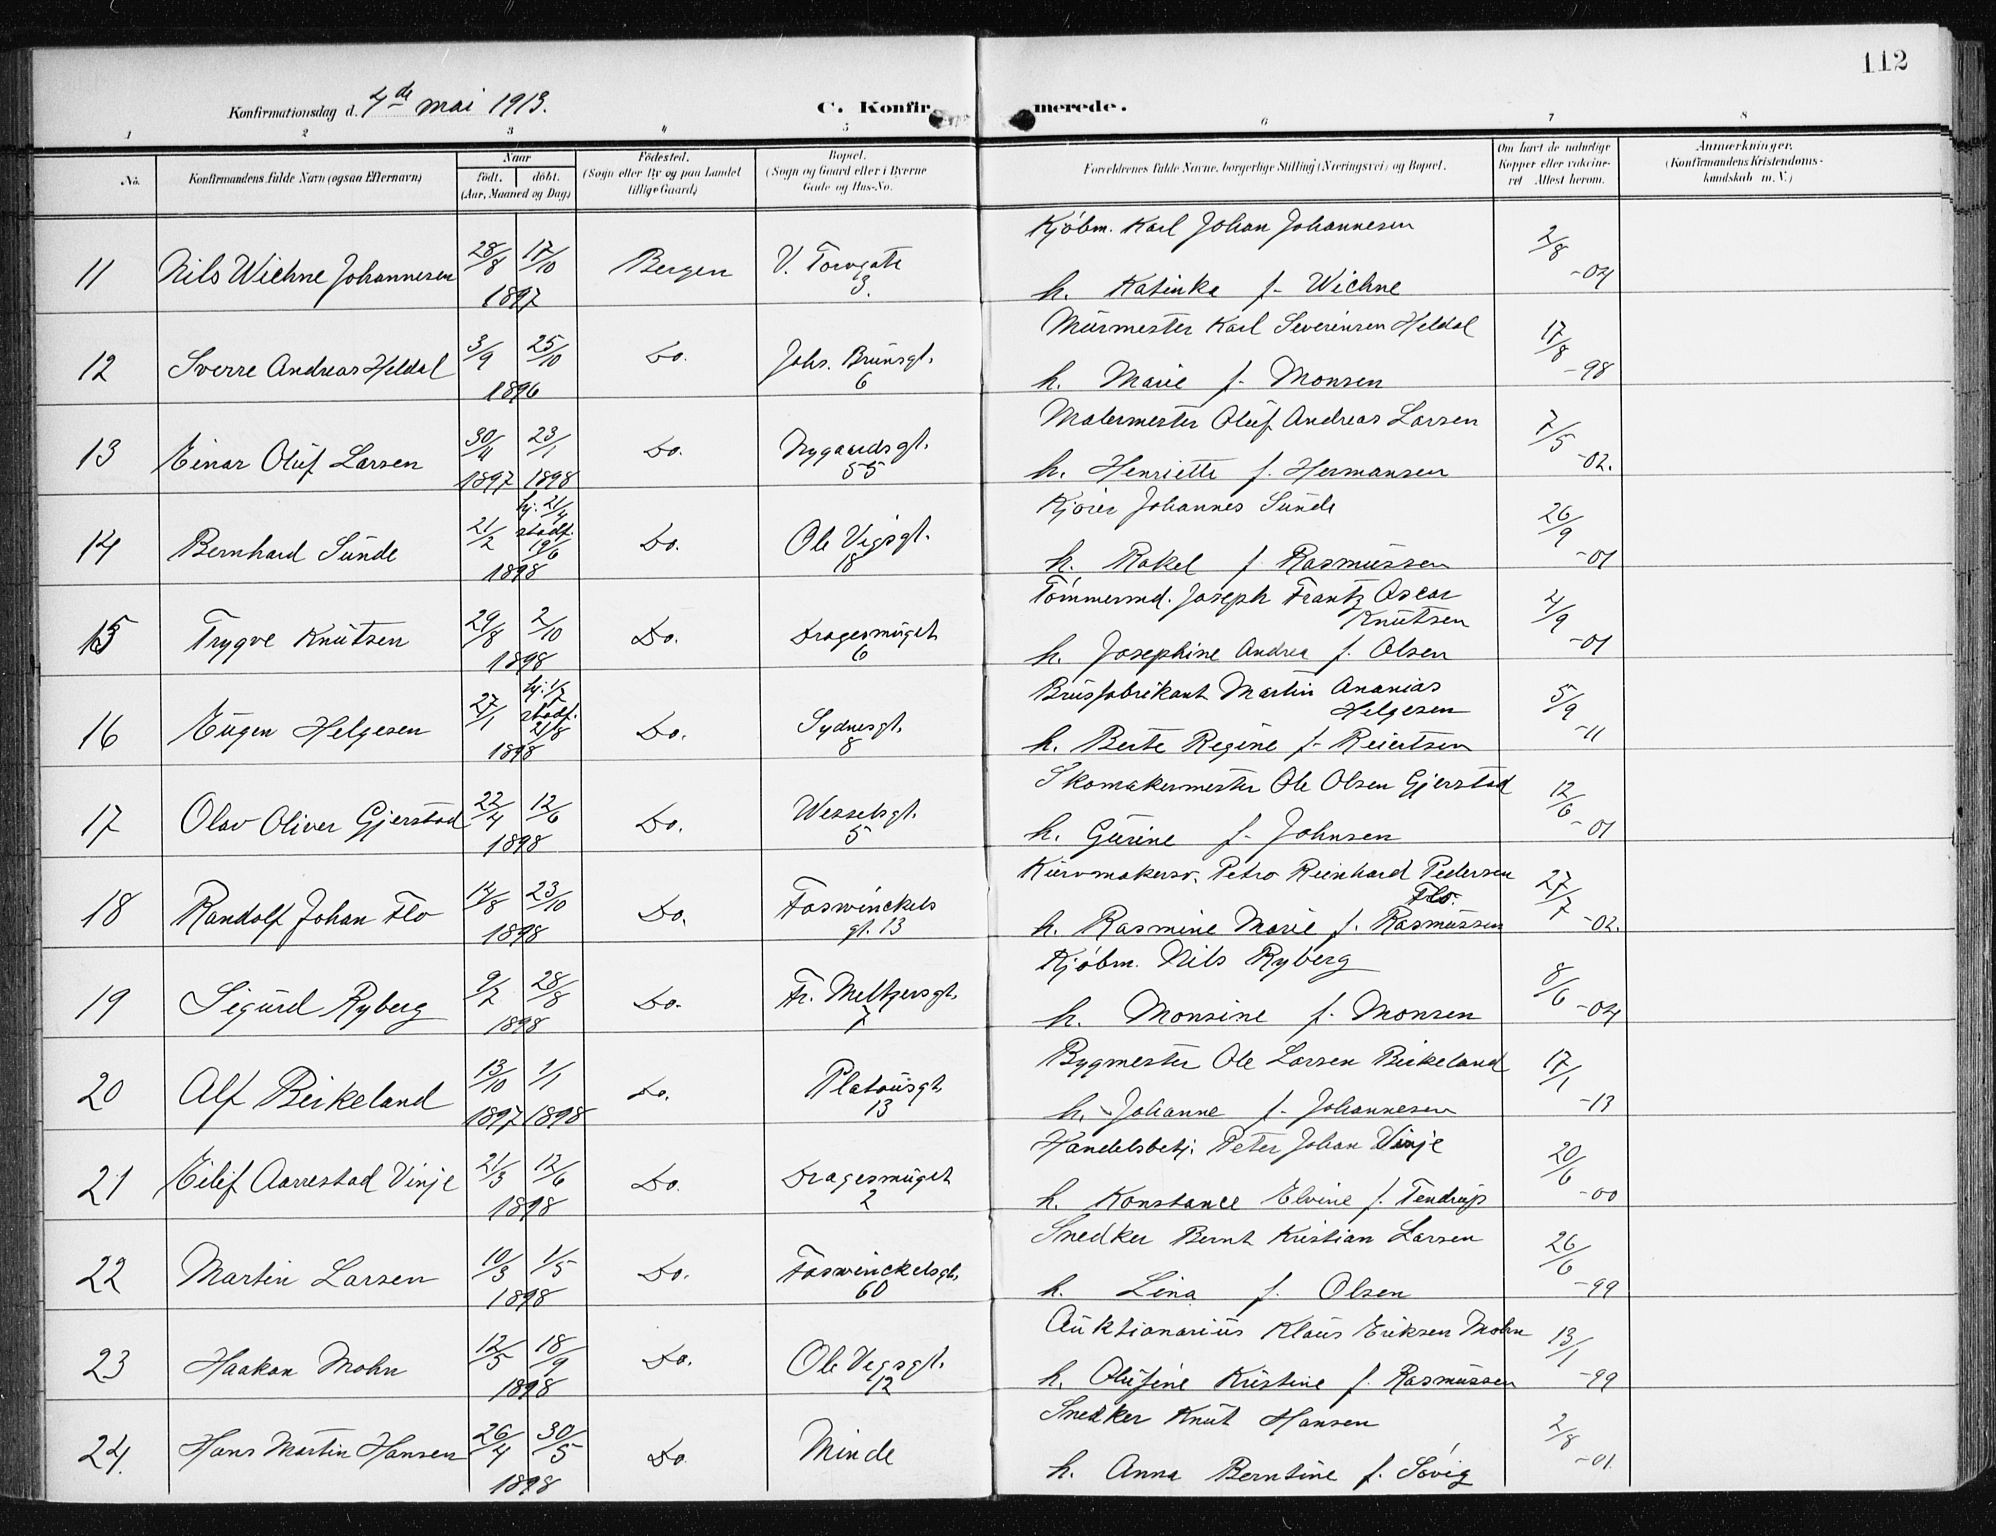 112
Konfirmationsdag d. 4de mai 1913.
C. Konfirmerede.
1 2 3 4 5 6 7 8
No. Konfirmandens fulde Navn (ogsaa Efternavn)
Naar
født. døbt.
(Aar, Maaned og Dag)
Fødested.
(Sogn eller By og paa Landet
tillige Gaard)
Bopæl.
(Sogn og Gaard eller i Byerne
Gade og Hus-No.
Forældrenes fulde Navne, borgerlige Stilling (Næringsvei) og Bopæl.
Om havt de naturlige
Kopper eller vakcine-
ret Attest herom.
Anmærkninger.
(Konfirmandens Kristendoms-
kundskab m. V.)
11 Nils Wichne Johannesen 28/8 17/10 1897 Bergen V. Torvgate 3.
Kjøbm. Karl Johan Johannesen
h. Katinka f. Wichne 2/8 -04
12 Sverre Andreas Heldal 3/9 25/10 1896 Do. Johs. Brunsgt. 6
Murmester Karl Severinsen Heldal
h. Marie f. Monsen 17/8 -98
13 Einar Oluf Larsen 30/4 1897 23/1 1898 Do. Nygaardsgt. 55
Malermester Oluf Andreas Larsen
h. Henriette f. Hermansen 7/5 -02.
14 Bernhard Sunde 21/2 hj. 21/4 stadf. 19/6 1898 Do. Ole Vigsgt. 18
Kjører Johannes Sunde
h. Rakel f. Rasmussen 26/9 -01
15 Trygve Knutsen 29/8 2/10 1898 Do. Dragesmuget 6
Tømmermd. Joseph Frantz Oscar
Knutsen
h. Josephine Andrea f. Olsen 4/9 -01
16 Eugen Helgesen 27/1 hj. 1/2 stadf. 21/8 1898 Do. Sydnesgt. 8
Brusfabrikant Martin Ananias
Helgesen
h. Berte Regine f. Reiertsen 5/9 -11
17 Olav Oliver Gjerstad 22/4 12/6 1898 Do. Wesselsgt. 5
Skomakermester Ole Olsen Gjerstad
h. Gurine f. Johnsen 12/6 -01
18 Randolf Johan Flo 14/8 23/10 1898 Do. Foswinckels gt. 13
Kurvmakersv. Petro Reinhard Pedersen
Flo.
h. Rasmine Marie f. Rasmussen 27/7 -02.
19 Sigurd Ryberg 9/7 28/8 1898 Do. Fr. Meltzersgt. 7
Kjøbm. Nils Ryberg
h. Monsine f. Monsen 8/6 -04
20 Alf Birkeland 13/10 1897 1/1 1898 Do. Platousgt. 13
Bygmester Ole Larsen Birkeland
h. Johanne f. Johannesen 17/1 -13
21 Eilif Aarrestad Vinje 21/3 12/6 1898 Do. Dragesmuget 2
Handelsbetj. Peter Johan Vinje
h. Konstance Elvine f. Tendrup 20/6 -00
22 Martin Larsen 10/3 1/5 1898 Do. Foswinckelsgt. 60
Snedker Bernt Kristian Larsen
h. Lina f. Olsen 26/6 -99
23 Haakon Mohn 12/5 18/9 1898 Do. Ole Vigsgt. 12
Auktionarius Klaus Eriksen Mohn
h. Olufine Kristine f. Rasmussen 13/1 -99
24. Hans Martin Hansen 26/4 30/5 1898 Do. Minde
Snedker Knut Hansen
h. Anna Berntine f. Søvig 2/8 -01.